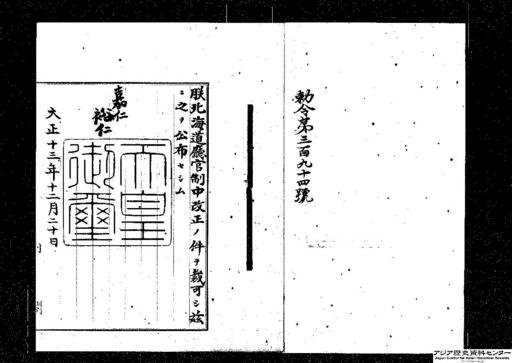 勅令第三百九十四號
朕北海道廳官制中改正ノ件ヲ裁可シ茲
ニ之ヲ公布セシム
嘉仁
裕仁
天皇
御璽
大正十三年十二月二十日
アジア歴史資料センター
Japan Center for Asian Historical Records